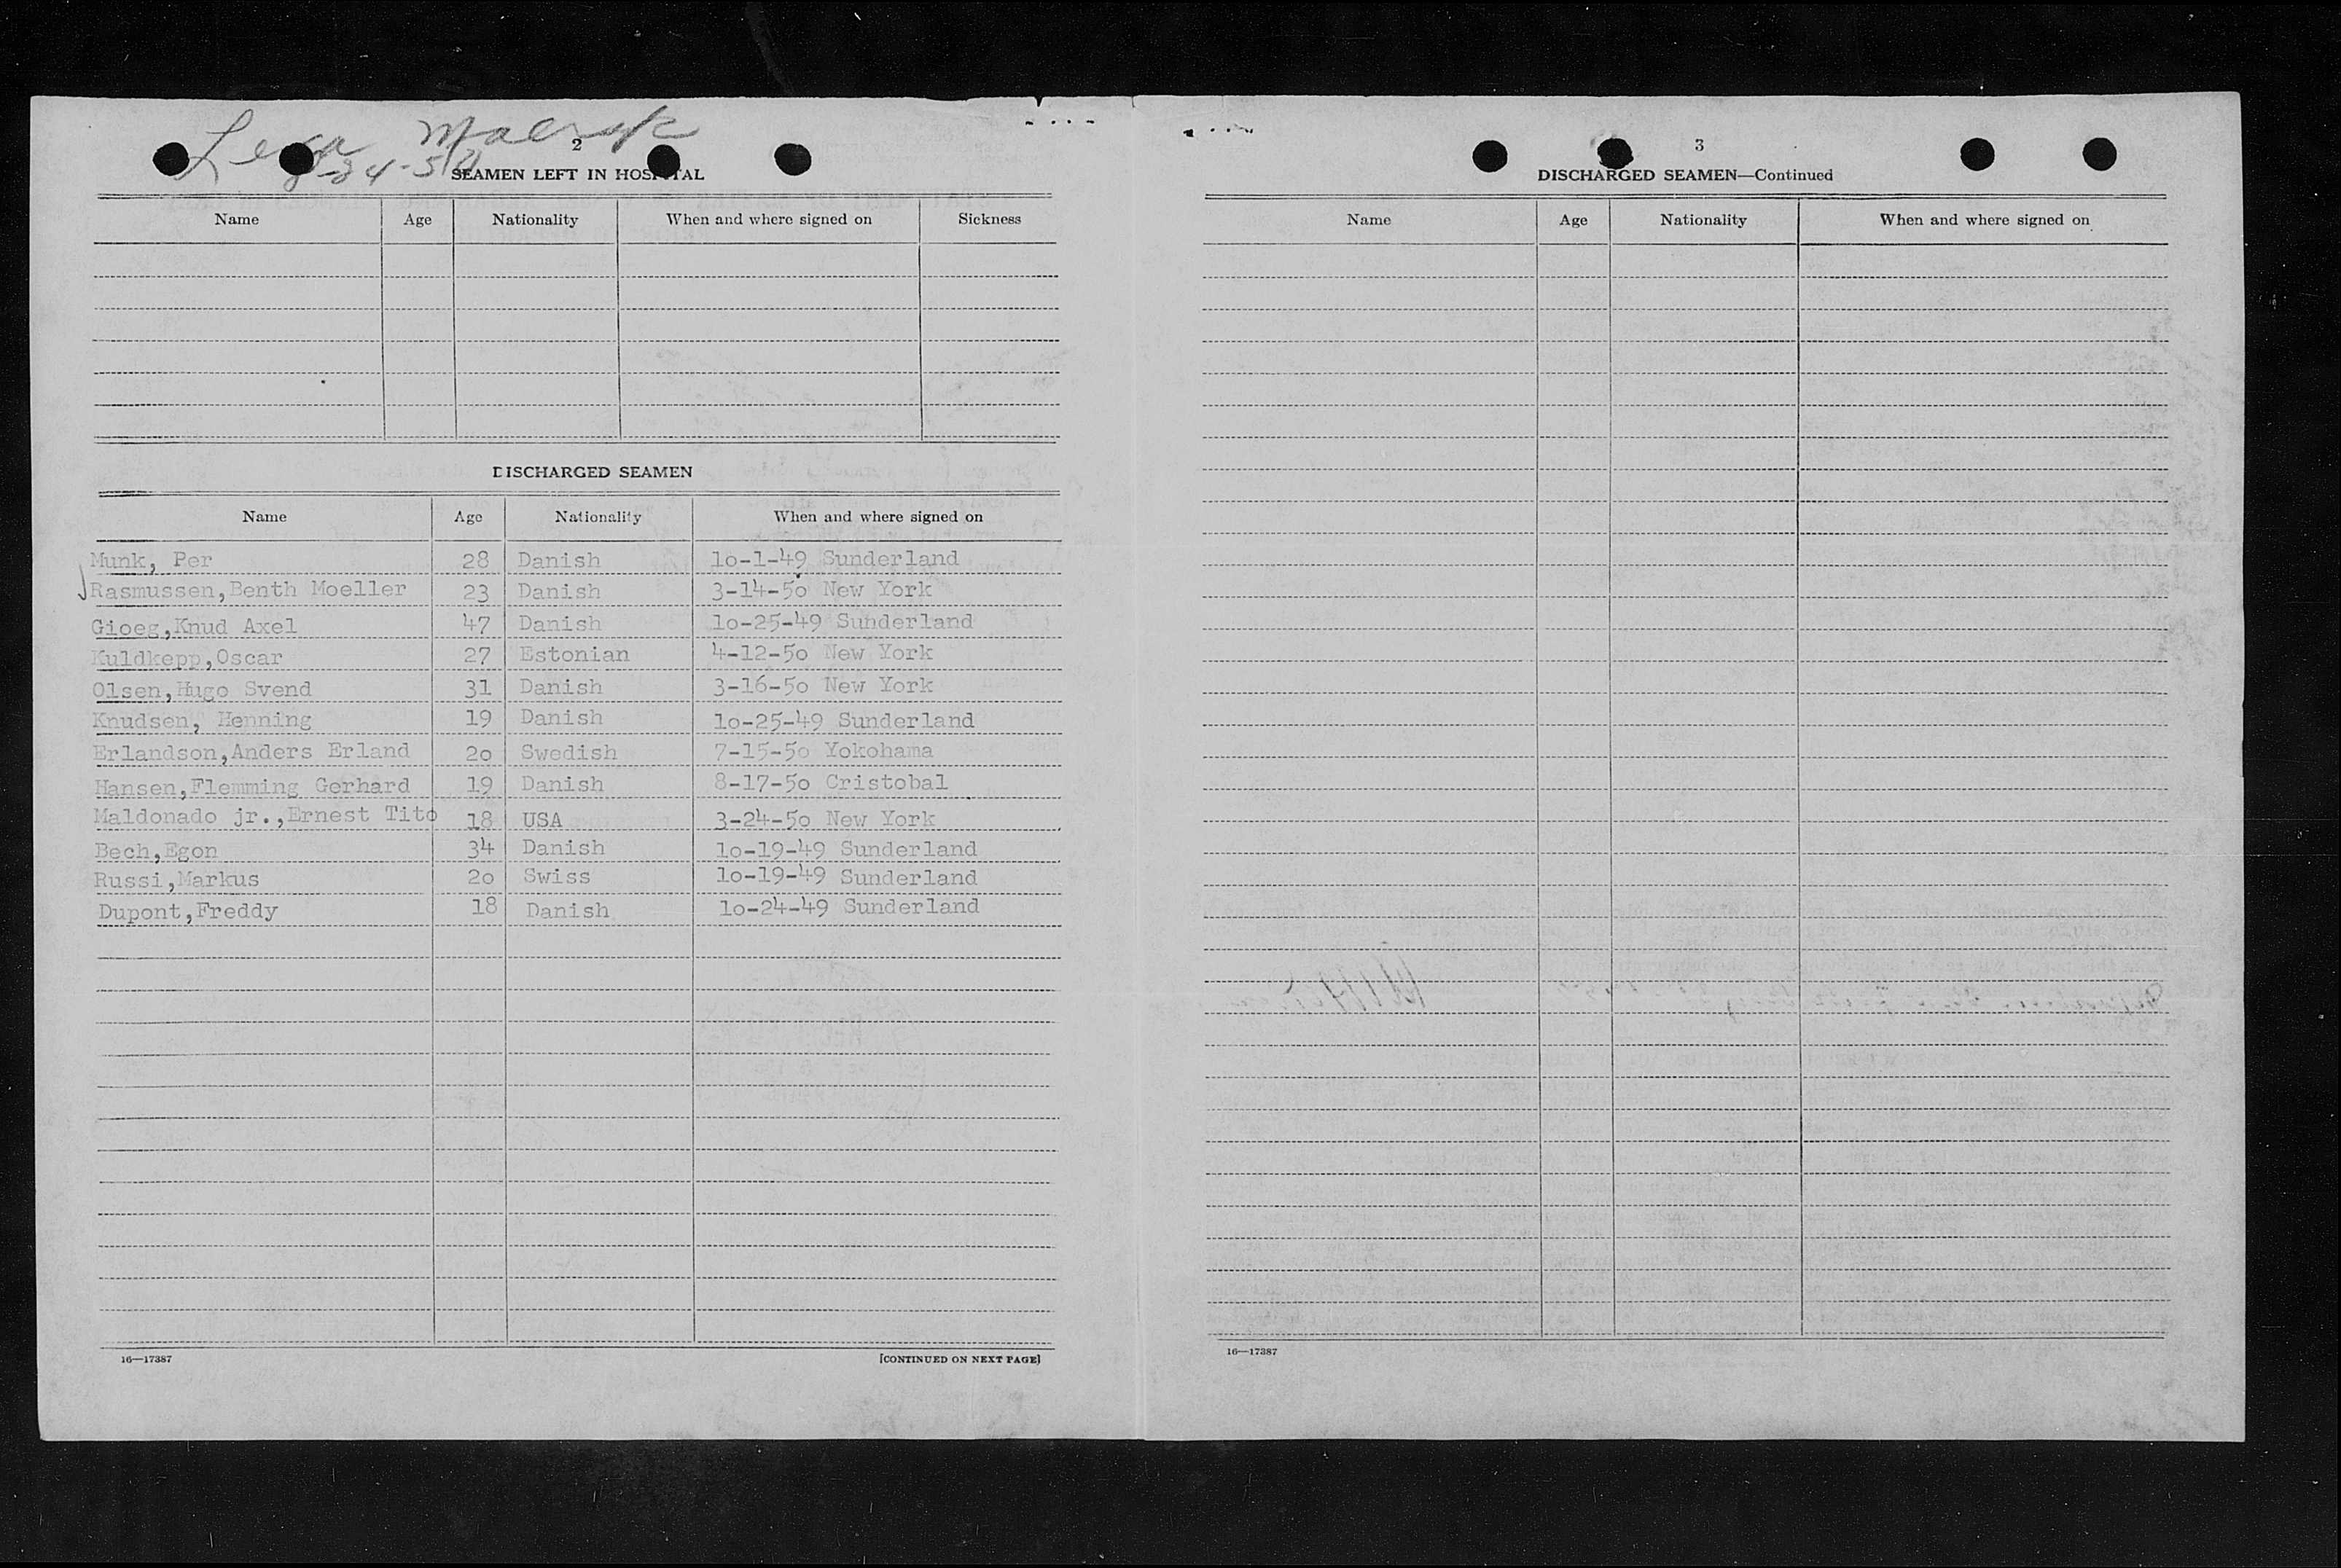 Maersk
2
SEAMEN LEFT IN HOSPITAL
Name Age Nationality When and where signed on Sickness
DISCHARGED SEAMEN
Name Age Nationality When and where signed on
Munk, Per 28 Danish 10-1-49 Sunderland
Rasmussen,Benth Moeller 23 Danish 3-14-50 New York
Gioeg,Knud Axel 47 Danish 10-25-49 Sunderland
Kuldkepp,Oscar 27 Estonian 4-12-50 New York
Olsen,Hugo Svend 31 Danish 3-16-50 New York
Knudsen, Henning 19 Danish 10-25-49 Sunderland
Erlandson,Anders Erland 20 Swedish 7-15-50 Yokohama
Hansen,Flemming Gerhard 19 Danish 8-17-50 Cristobal
Maldonado jr.,Ernest Tito 18 USA 3-24-50 New York
Bech,Egon 34 Danish 10-19-49 Sunderland
Russi,Markus 20 Swiss 10-19-49 Sunderland
Dupont,Freddy 18 Danish 10-24-49 Sunderland
16—17387 [CONTINUED ON NEXT PAGE]
3
DISCHARGED SEAMEN—Continued
Name Age Nationality When and where signed on
16—17387